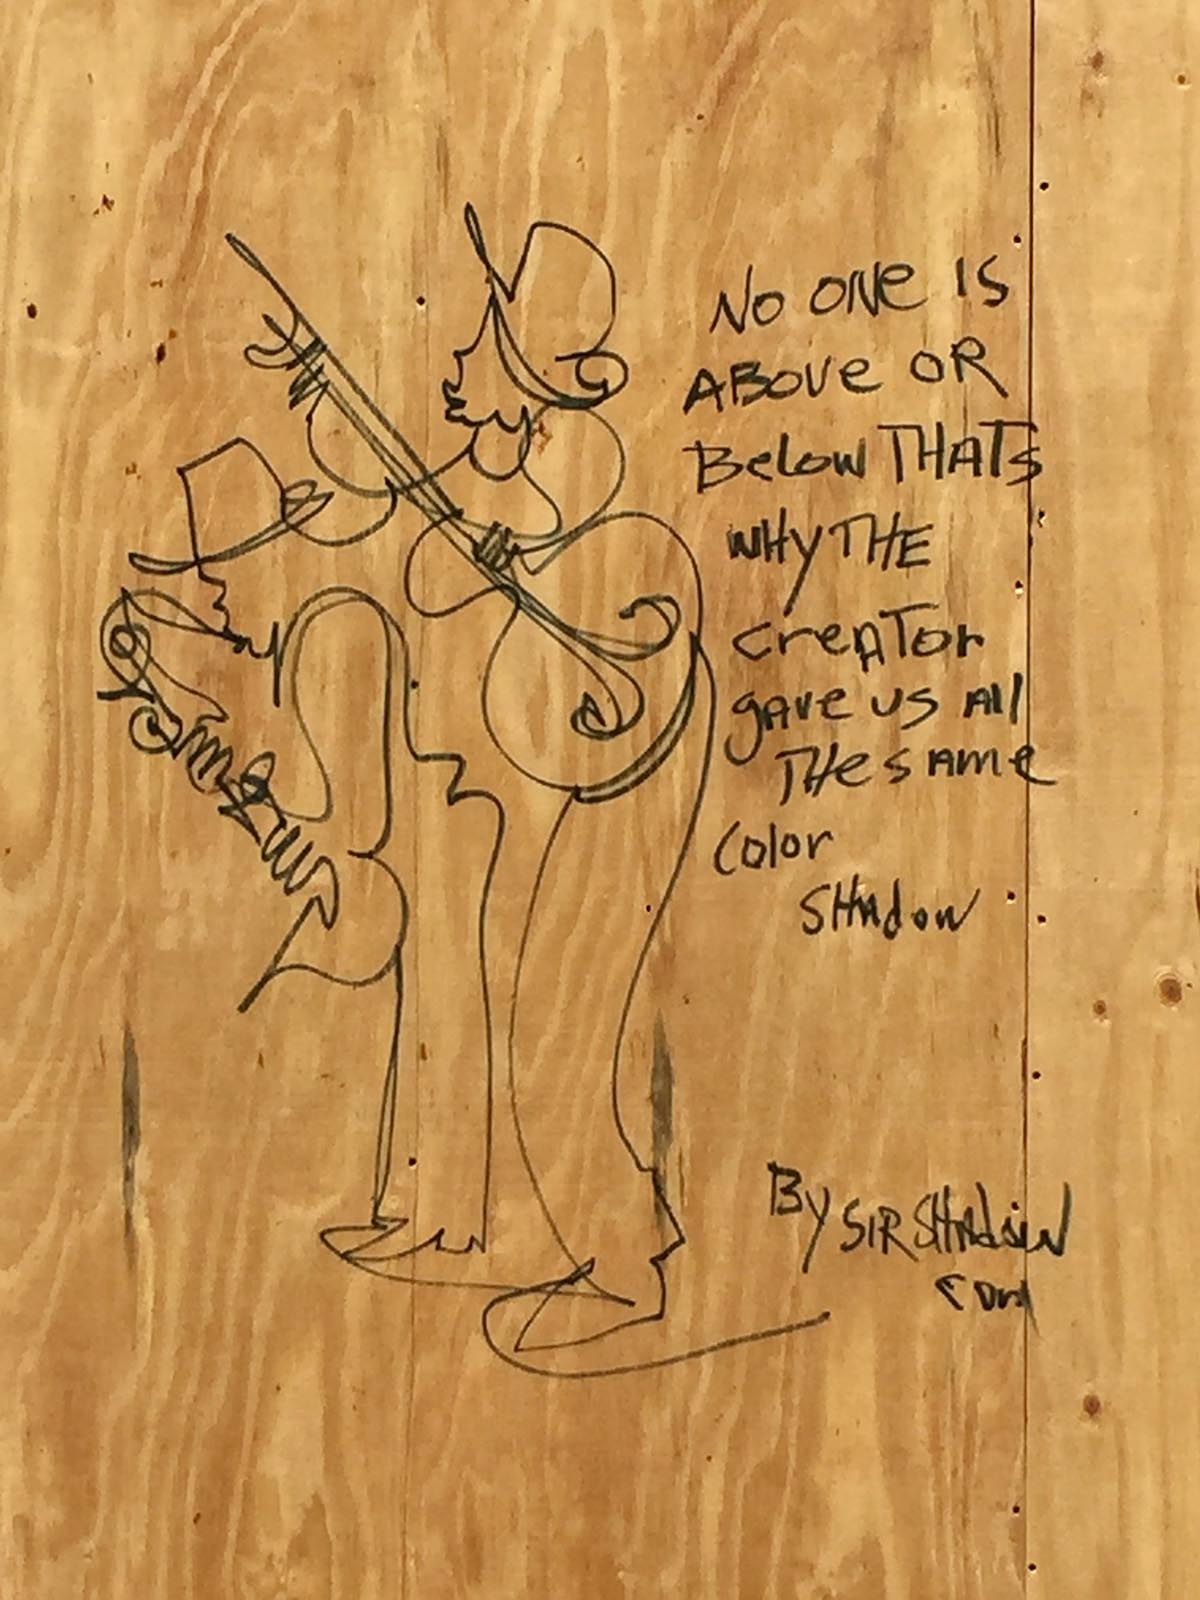 NO ONE IS
ABOVE OR
Below THATS
WHY THE
CreATor
gAve us All
THE SAme
Color
SHAdow
By SIR SHAdow
com